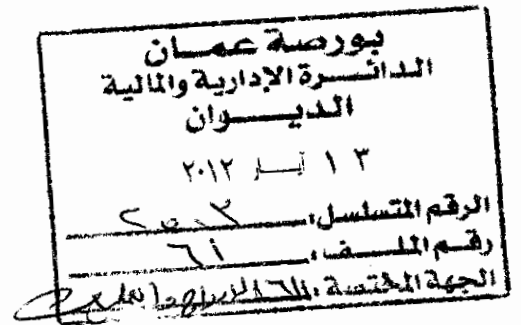 بورصة عمان
الدائرة الإدارية والمالية
الديوان
١٣ أيار ٢٠١٢
الرقم المتسلسل:
رقم الملف: ٦١
الجهة المختصة: